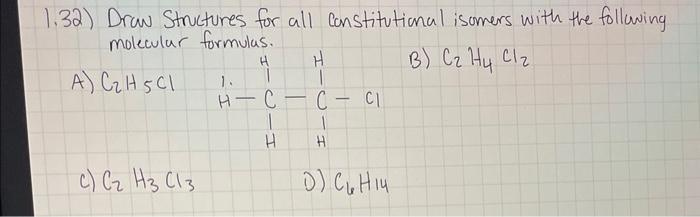 1.32) Draw Structures for all Constitutional isomers with the following
molecular formulas.
A) C2H5Cl
1.
H H
H — C — C — Cl
H H
B) C2 H4 Cl2
C) C2 H3 Cl3
D) C6H14